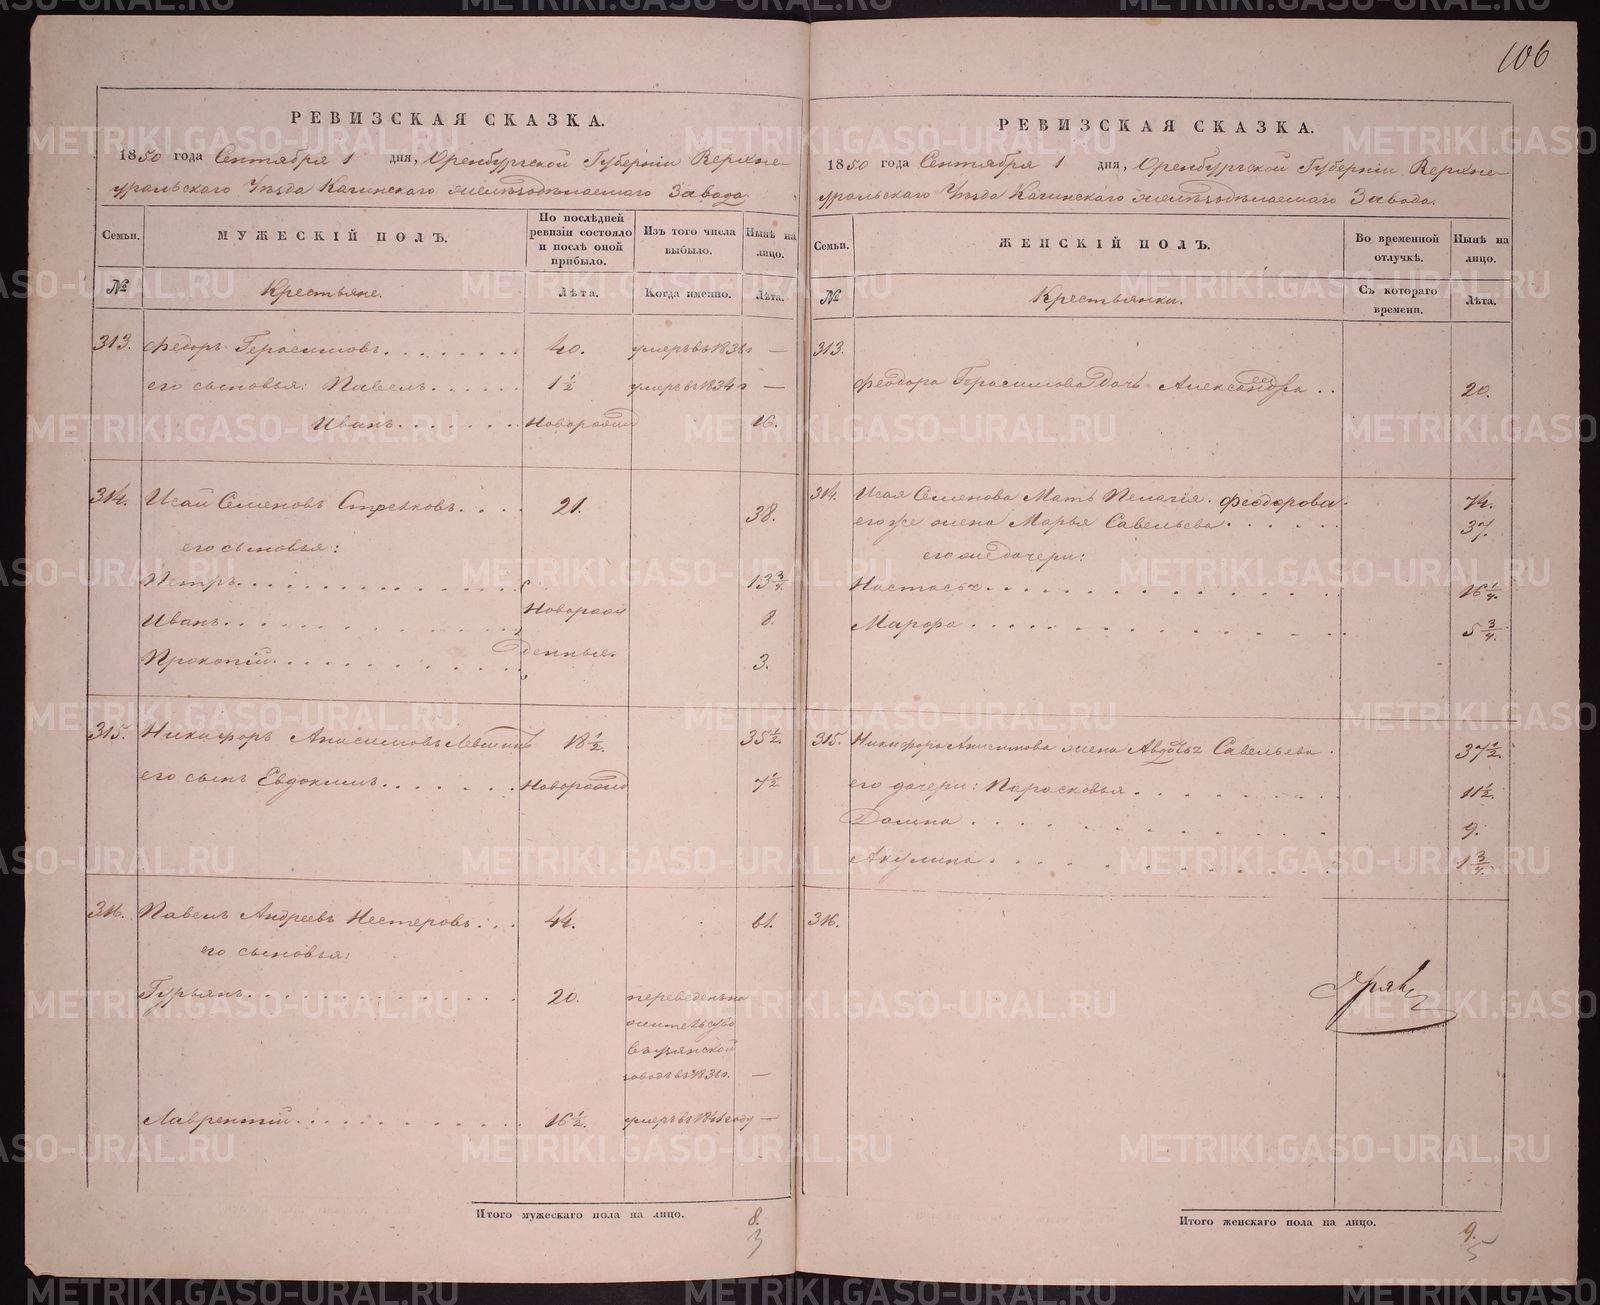 106
РЕВИЗСКАЯ СКАЗКА.
1850 года Сентября 1 дня, Оренбургской Губернии Верхне-
уральскаго Уѣзда Кагинскаго желѣзодѣлаемаго Завода
Семьи.
МУЖЕСКІЙ ПОЛЪ.
По послѣдней
ревизіи состояло
и послѣ оной
прибыло.
Изъ того числа
выбыло.
Нынѣ на
лицо.
№
Крестьяне.
Лѣта.
Когда именно.
Лѣта.
313. Федоръ Герасимовъ 40. умеръ въ 183 г —
его сыновья: Павелъ 1 1/2 умеръ въ 1834 г —
Иванъ Новорожд 16.
314. Исай Семеновъ Стрелковъ 21. 38.
его сыновья:
Петръ 13 3/4.
Иванъ Новорож 8.
Прокопій денныя. 3.
315. Никифоръ Анисимовъ 18 1/2. 35 1/2.
его сынъ Евдокимъ Новорожд 7 1/2
316. Павелъ Андреевъ Нестеровъ 44. 61.
его сыновья:
Гурьянъ 20. переведенъ на
жительство
въ Узянской
заводъ въ 183 г. —
Лаврентій 16 1/2. умеръ въ 184 году —
Итого мужескаго пола на лицо. 8.
3
РЕВИЗСКАЯ СКАЗКА.
1850 года Сентября 1 дня, Оренбургской Губерніи Верхне-
уральскаго Уѣзда Кагинскаго желѣзодѣлаемаго Завода.
Семьи.
ЖЕНСКІЙ ПОЛЪ.
Во временной
отлучкѣ.
Нынѣ на
лицо.
№
Крестьянки.
Съ котораго
времени.
Лѣта.
313.
Феодора Герасимова дочь Александра 20.
314. Исая Семенова Мать Пелагія Феодорова 74.
его же жена Марья Савельева 37.
его же дочери:
Настасья 16 1/4.
Марфа 5 3/4.
315. Никифора Анисимова жена Авдотья Савельева 37 1/2.
его дочери: Парасковья 11 1/2.
Домна 9.
Акулина 1 3/4.
316.
Итого женскаго пола на лицо. 9.
5
METRIKI.GASO-URAL.RU